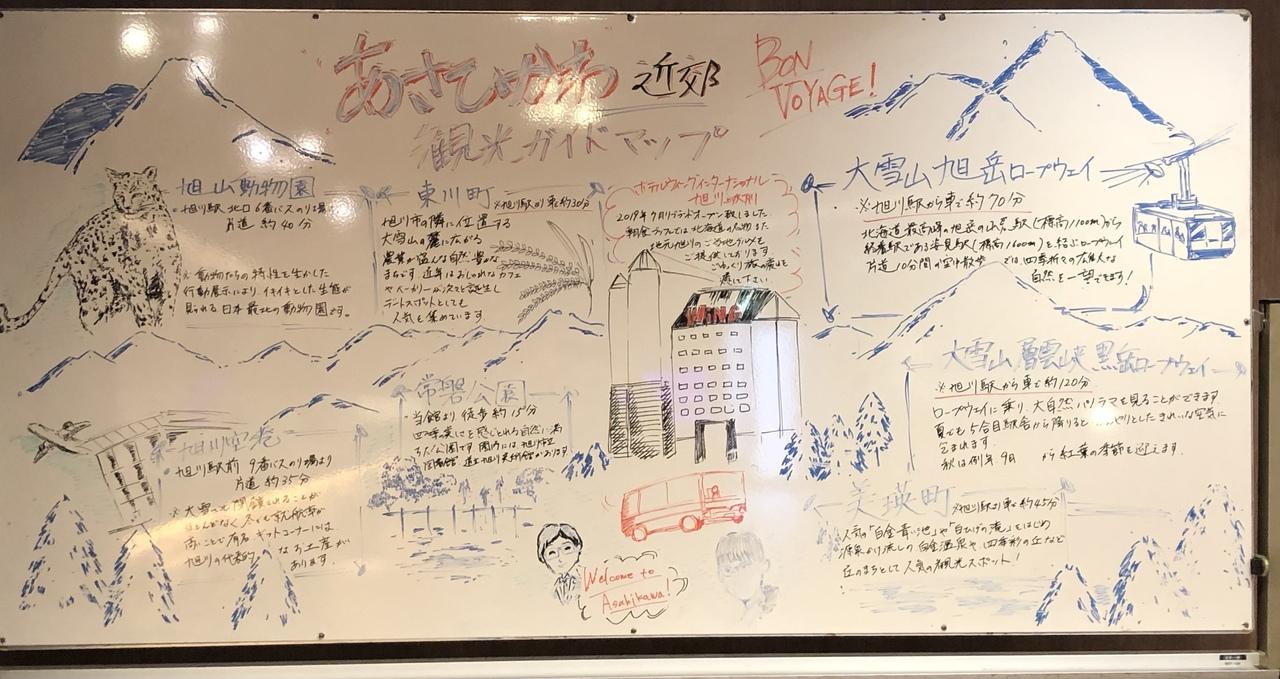 あさひかわ 近郊
BON
VOYAGE!
観光ガイドマップ
旭山動物園
旭川駅北口 6番バスのりば
片道 約40分
※動物たちの特性を生かした
行動展示により、イキイキとした生態が
見られる日本最北の動物園です。
東川町 ※旭川駅より車で約30分
旭川市の隣に位置する
大雪山の麓に広がる
農業が盛んな自然豊かな
まちです 近年はおしゃれなカフェ
やベーカリーが次々と誕生し
デートスポットとしても
人気を集めています
ホテルウィングインターナショナル
旭川駅前
2019年7月グランドオープン致しました
朝食ブッフェでは北海道の名物また
地元旭川のご当地グルメを
ご提供しております
ごゆっくり旅の疲れを
癒して下さい
WING
大雪山旭岳ロープウェイ
※旭川駅から車で約70分
北海道最高峰の旭岳の山麓駅(標高1100m)から
終着駅である姿見駅(標高1600m)を結ぶロープウェイ
片道10分間の空中散歩 では四季折々の雄大な
自然を一望できます!
大雪山層雲峡 黒岳ロープウェイ
※旭川駅から車で約120分
ロープウェイに乗り、大自然パノラマを見ることができます
夏でも5合目駅舎から降りると やりとしたきれいな空気に
つつまれます
秋は例年9月 から紅葉の季節を迎えます。
常磐公園
当館より徒歩約15分
四季折々を感じられる自然に満
ちた公園です 園内には旭川市立
図書館、道立旭川美術館があります
旭川空港
旭川駅前 9番バスのりばより
片道 約35分
※大雪でも閉鎖されることが
ほとんどなく冬でも就航率が
高いことで有名 ギフトコーナーには
旭川の代表的 なお土産が
あります
美瑛町 ※旭川駅より車で約45分
人気の「白金青い池」や「白ひげの滝」をはじめ
源泉かけ流しの白金温泉や、四季彩の丘など
丘のまちとして人気の観光スポット!
Welcome to
Asahikawa!